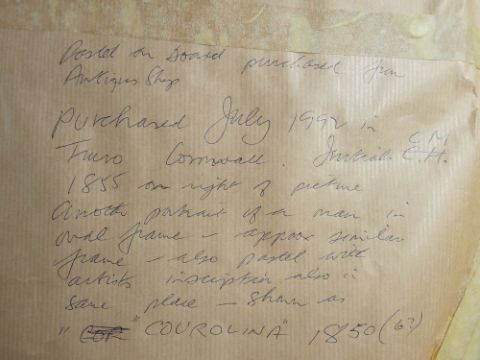 Pastel on board purchased from
Antiques Shop
Purchased July 1992 in
Truro Cornwall. Initials C M
C.H.
1855 on right of picture
Another portrait of a man in
oval frame - approx similar
frame - also pastel with
artists inscription also in
same place - shown as
" " COUROLINA" 1850 (63)